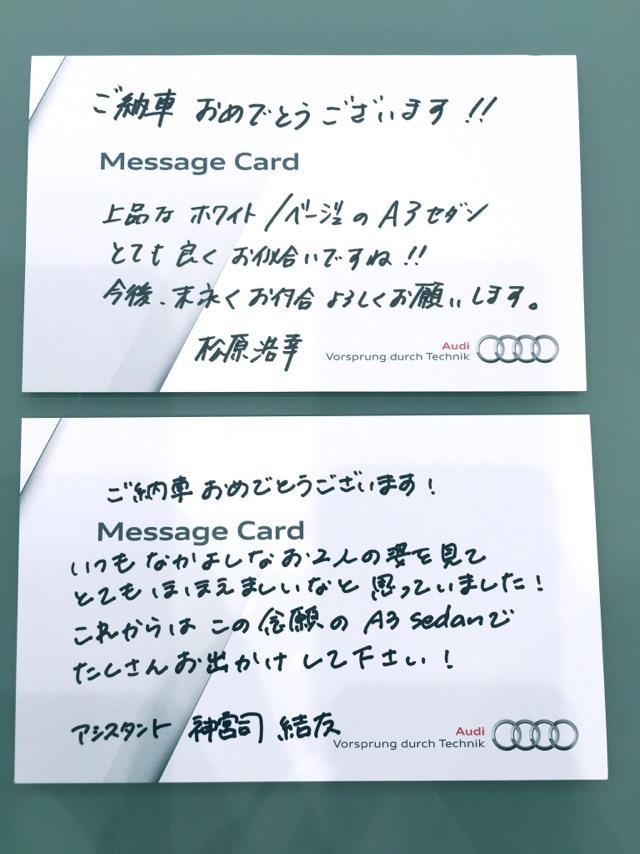 ご納車 おめでとうございます!!
Message Card
上品な ホワイト/ベージュの A3セダン
とても 良く お似合いですね!!
今後、末永くお付合 よろしくお願いします。
松原浩幸
Audi
Vorsprung durch Technik
ご納車 おめでとうございます!
Message Card
いつも なかよしなお2人の姿を見て
とても ほほえましいなと 思っていました!
これからは この念願の A3 sedanで
たくさんお出かけ して下さい!
アシスタント 神宮司 結友
Audi
Vorsprung durch Technik